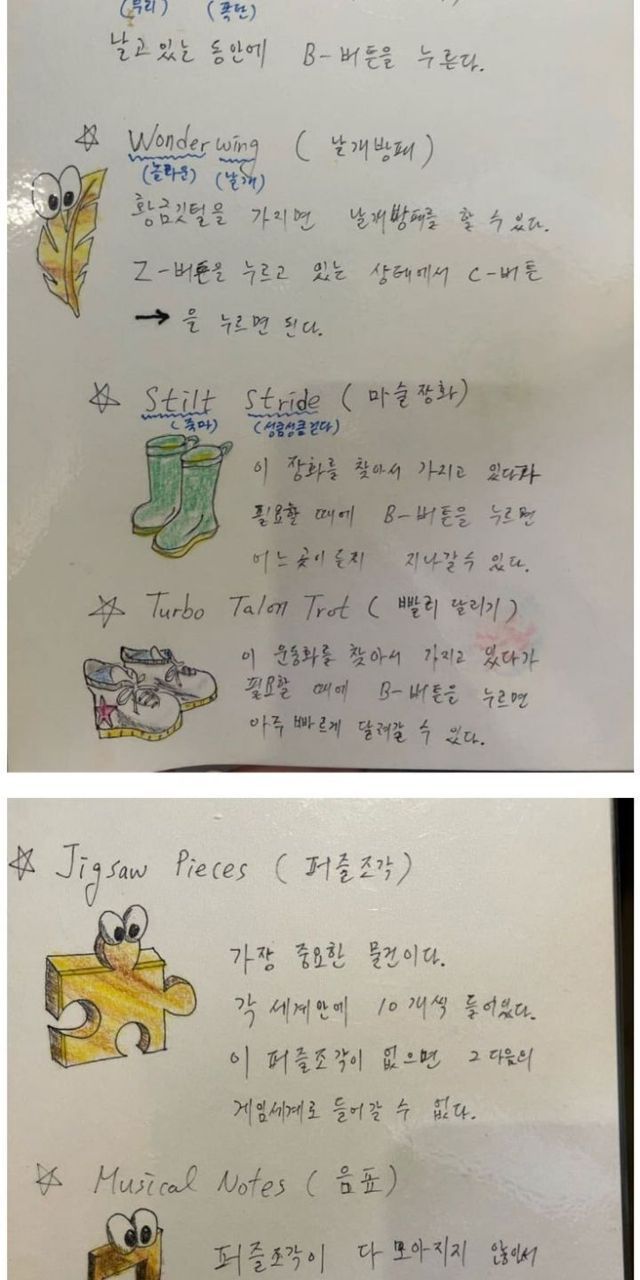 (부리) (폭탄)
날고있는 동안에 B-버튼을 누른다.
☆ Wonderwing ( 날개방패 )
(놀라운) (날개)
황금깃털을 가지면 날개방패를 할 수 있다.
Z-버튼을 누르고 있는 상태에서 C-버튼
→ 을 누르면 된다.
☆ Stilt Stride ( 마술장화 )
(죽마) (성큼성큼걷다)
이 장화를 찾아서 가지고 있다가
필요할 때에 B-버튼을 누르면
어느곳이든지 지나갈수 있다.
☆ Turbo Talon Trot ( 빨리 달리기 )
이 운동화를 찾아서 가지고 있다가
필요할 때에 B-버튼을 누르면
아주 빠르게 달려갈 수 있다.
☆ Jigsaw Pieces ( 퍼즐조각 )
가장 중요한 물건이다.
각 세계안에 10개씩 들어있다.
이 퍼즐조각이 없으면 그 다음의
게임세계로 들어갈 수 없다.
☆ Musical Notes ( 음표 )
퍼즐조각이 다 모아지지 않아서